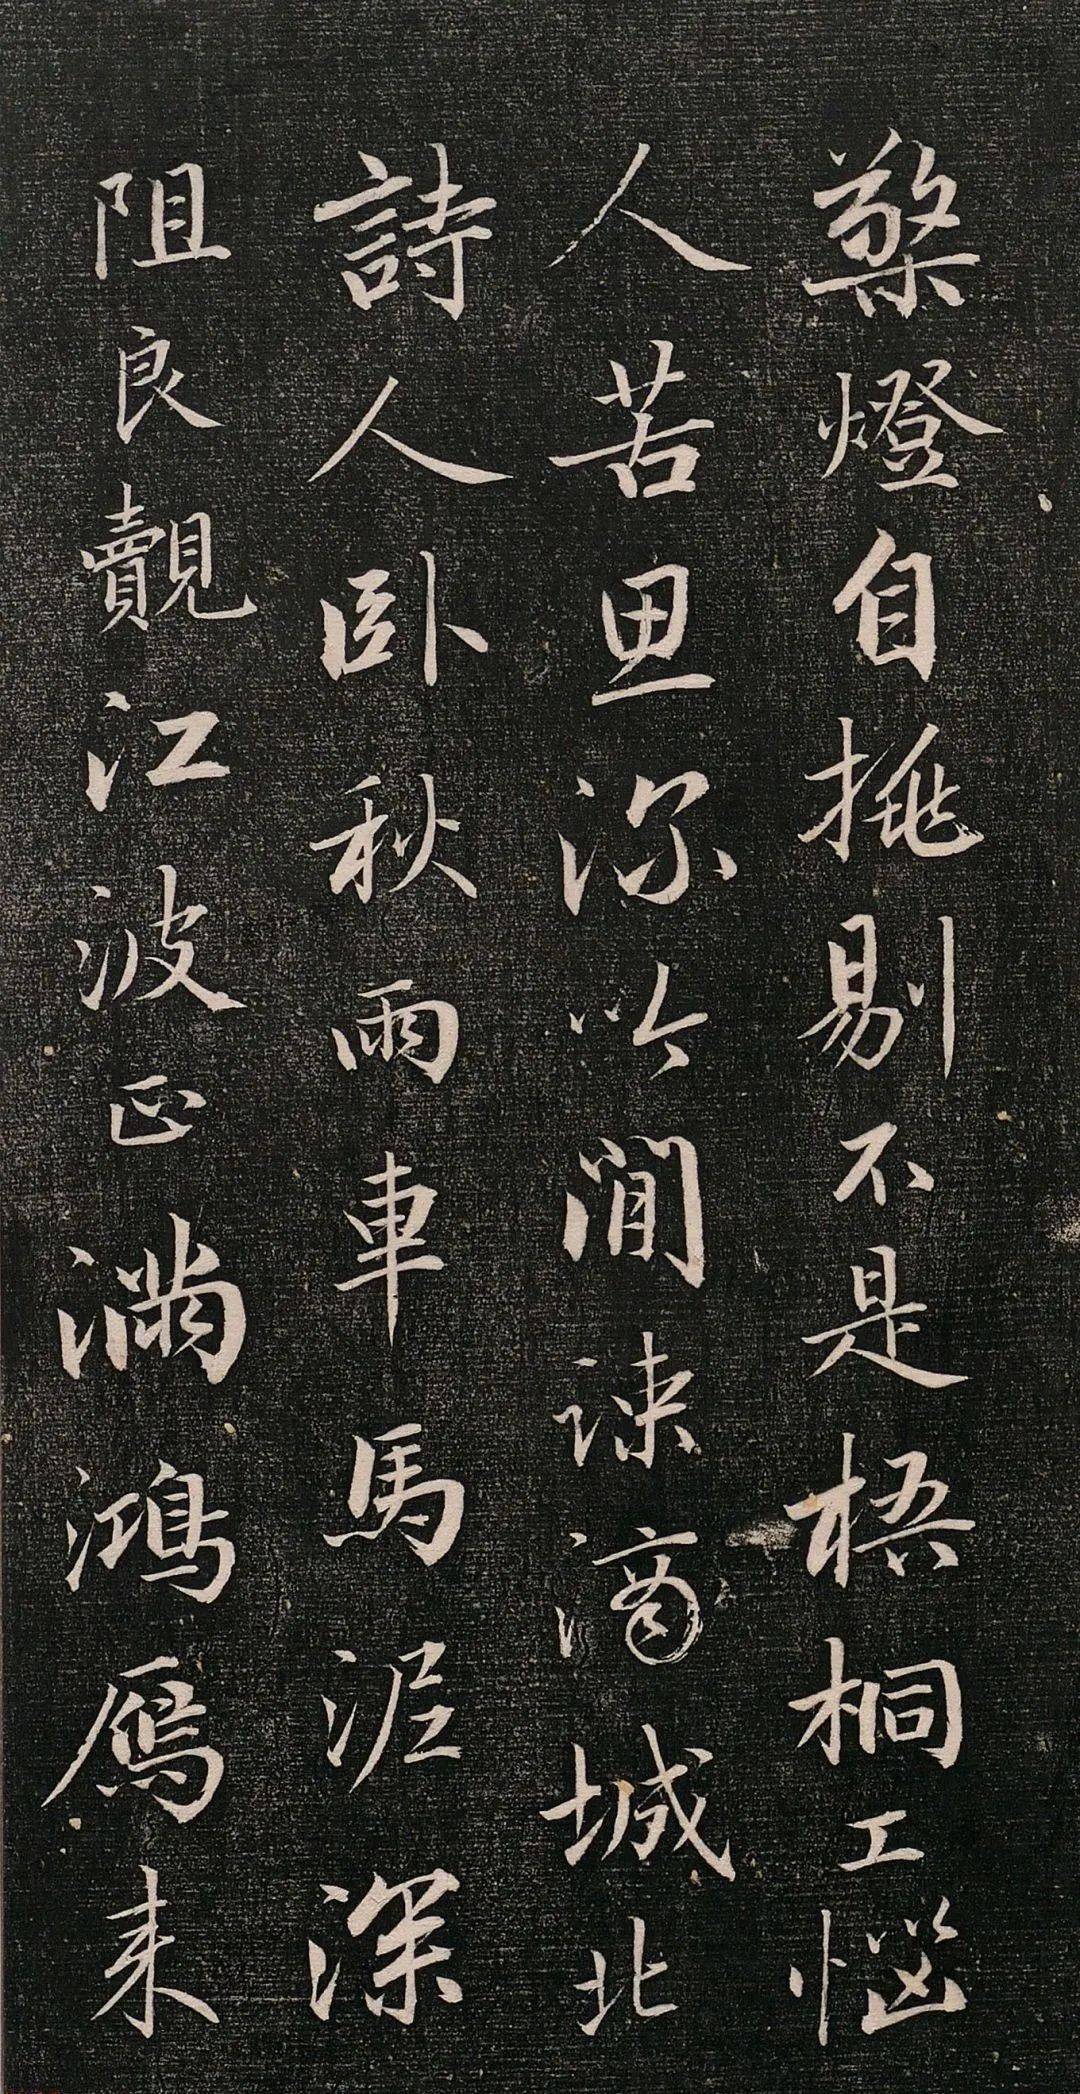 檠燈自挑剔不是梧桐工惱
人苦思深吟間疎滴城北
詩人卧秋雨車馬泥深
阻良覿江波正滿鴻鴈来